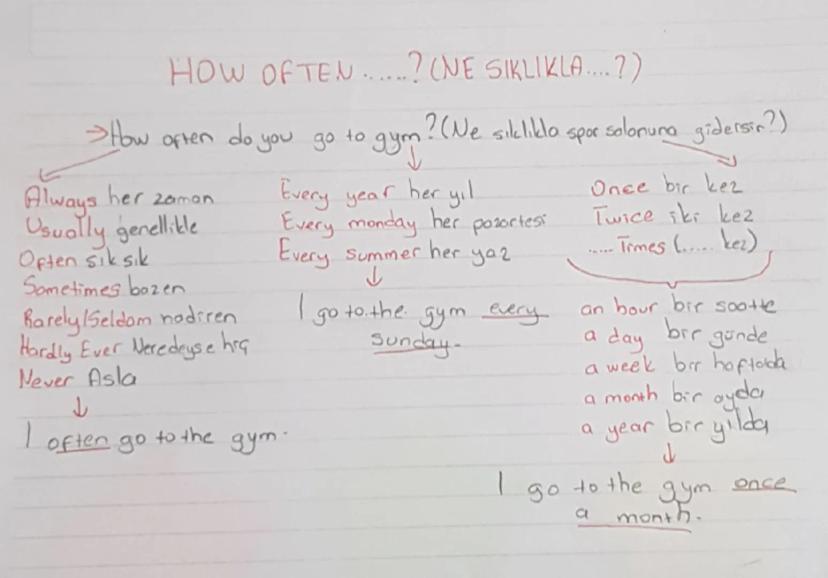 HOW OFTEN.....? (NE SIKLIKLA....?)
→How often do you go to gym? (Ne sıklıkla spor salonuna gidersin?)
Always her zaman
Usually genellikle
Often sık sık
Sometimes bazen
Rarely/Seldom nadiren
Hardly Ever Neredeyse hiç
Never Asla
↓
I often go to the gym.
Every year her yıl
Every monday her pazartesi
Every summer her yaz
↓
I go to the gym every
sunday.
Once bir kez
Twice iki kez
..... Times (..... kez)
an hour bir saatte
a day bir günde
a week bir haftada
a month bir ayda
a year bir yılda
↓
I go to the gym once
a month.